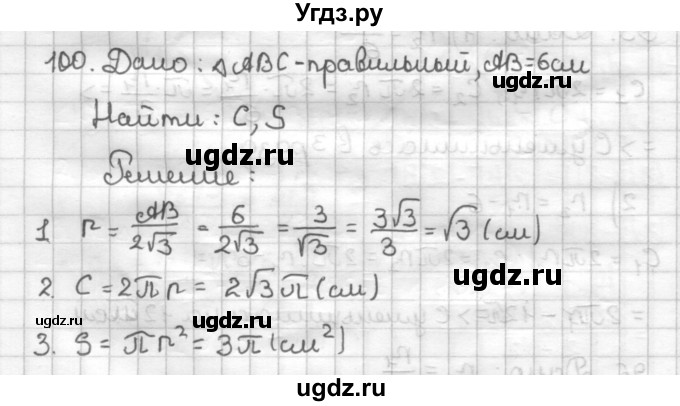 Угдз.ру
100. Дано: △ABC-правильный, AB=6см
Найти: C, S
ugdz.ru ugdz.ru
Решение:
1. r = AB/2√3 = 6/2√3 = 3/√3 = 3√3/3 = √3 (см)
ugdz.ru
2. C = 2πr = 2√3π (см)
ugdz.ru ugdz.ru
3. S = πr² = 3π (см²)
ugdz.ru
ugdz.ru